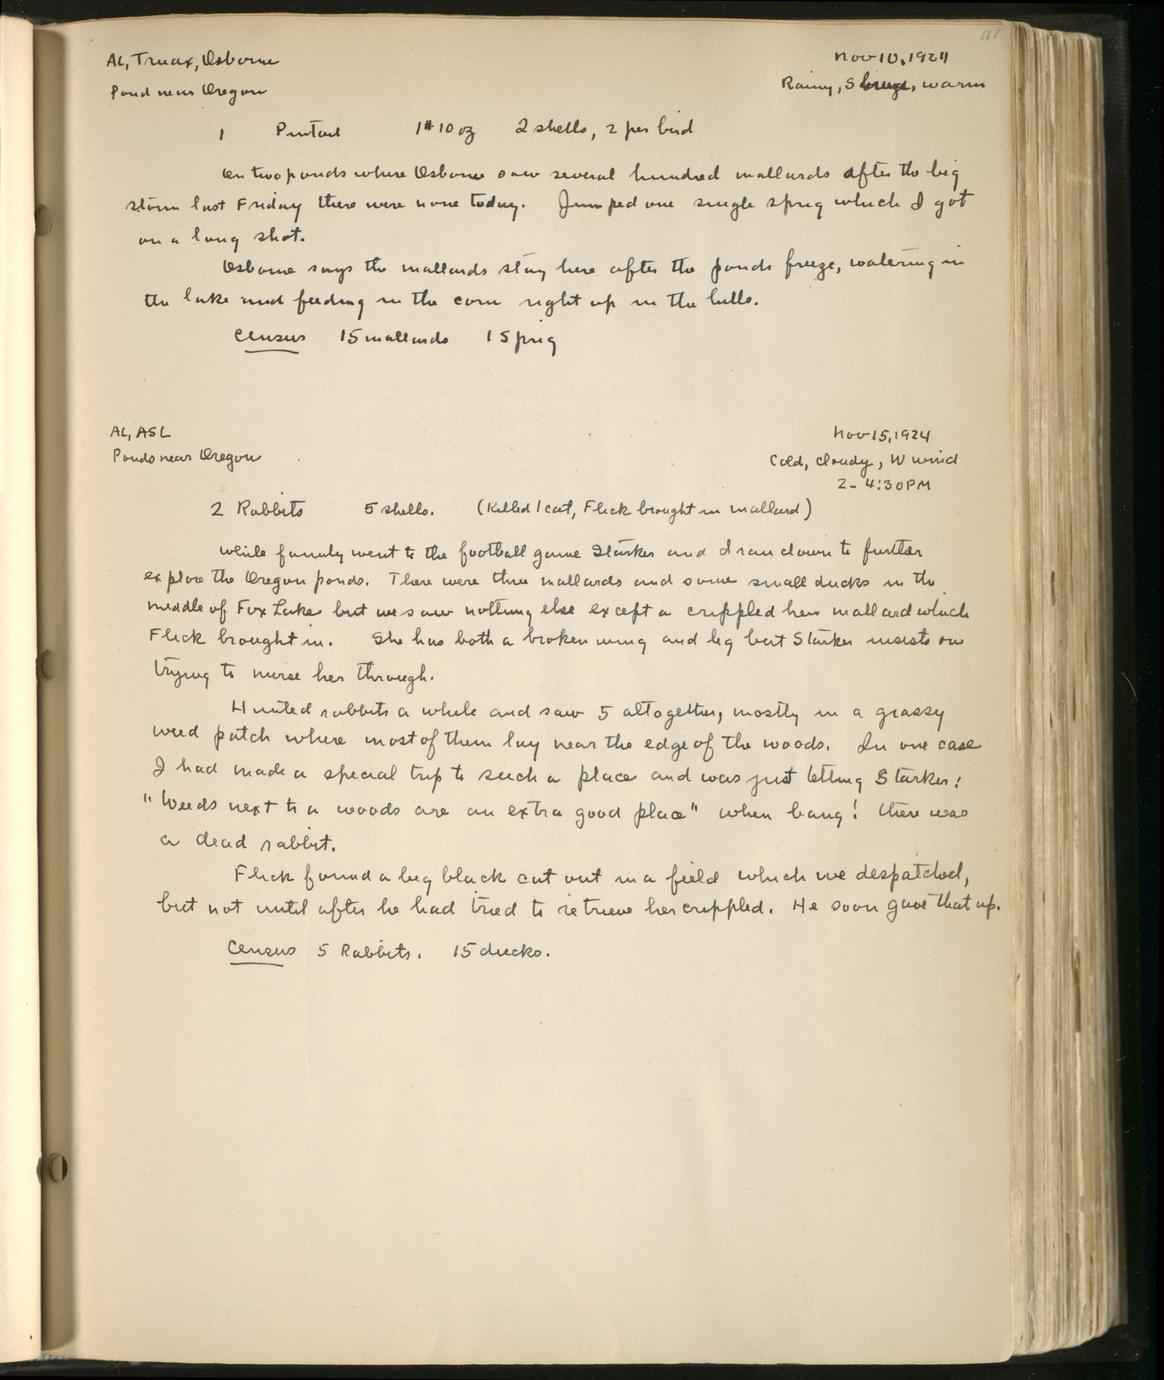 111
AL, Truax, Osborne
Nov 10, 1924
Pond near Oregon
Rainy, S breeze, warm
1 Pintail 1# 10 oz 2 shells, 2 per bird
On two ponds where Osborne saw several hundred mallards after the big
storm last Friday there were none today. Jumped one single sprig which I got
on a long shot.
Osborne says the mallards stay here after the ponds freeze, watering in
the lake and feeding in the corn right up in the hills.
Census 15 mallards 1 Sprig
AL, ASL
Nov 15, 1924
Ponds near Oregon
Cold, cloudy, W wind
2 - 4:30 PM
2 Rabbits 5 shells. (Killed 1 cat, Flick brought in mallard)
While family went to the football game Starker and I ran down to further
explore the Oregon ponds. There were three mallards and some small ducks in the
middle of Fox Lake but we saw nothing else except a crippled hen mallard which
Flick brought in. She has both a broken wing and leg but Starker insists on
trying to nurse her through.
Hunted rabbits a while and saw 5 altogether, mostly in a grassy
weed patch where most of them lay near the edge of the woods. In one case
I had made a special trip to such a place and was just telling Starker:
"Weeds next to a woods are an extra good place" when bang! there was
a dead rabbit.
Flick found a big black cat out in a field which we despatched,
but not until after he had tried to retrieve her crippled. He soon gave that up.
Census 5 Rabbits. 15 ducks.